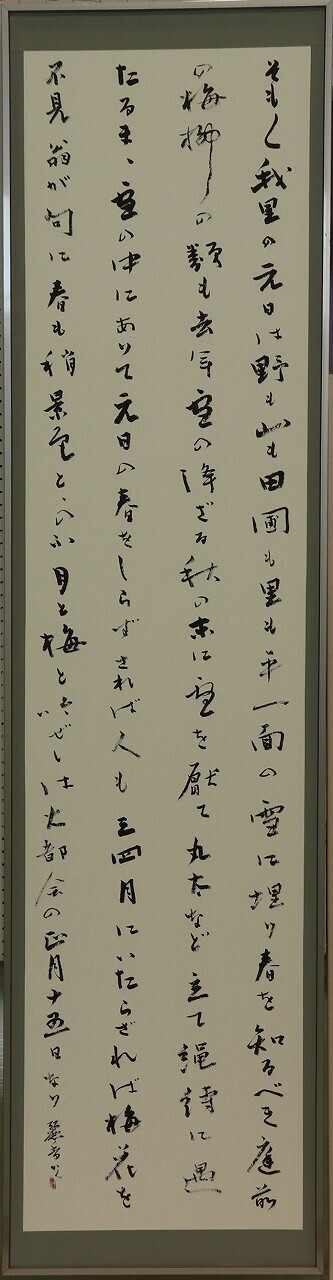 そも〱我里の元日は野も山も田圃も里も平一面の雪に埋り春を知るべき庭前
の梅柳の類も去年雪の降ざる秋の末に雪を厭て丸太など立て縄縛に遇
たるまゝ雪の中にありて元日の春をしらずされば人も三四月にいたらざれば梅花を
不見翁が句に春も稍景色とゝのふ月と梅と吟ぜしは大都会の正月十五日なり